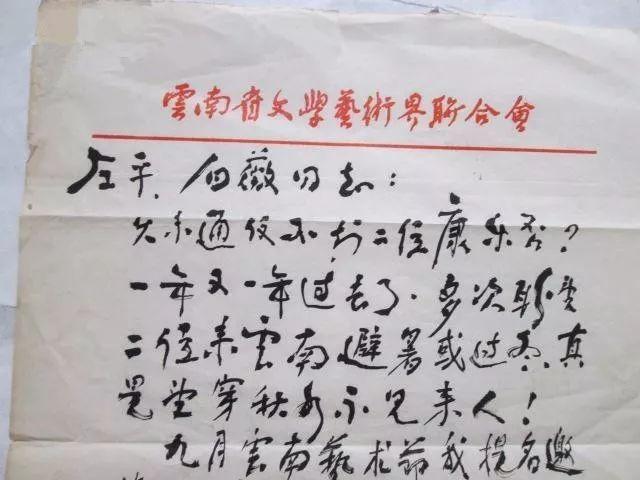 雲南省文學藝術界聯合會
左平、白薇同志:
久未通候不知二位康樂否?
一年又一年过去了,多次聆
二位来雲南避暑或过冬,真
是望穿秋水不见来人!
九月雲南藝术节我提名邀